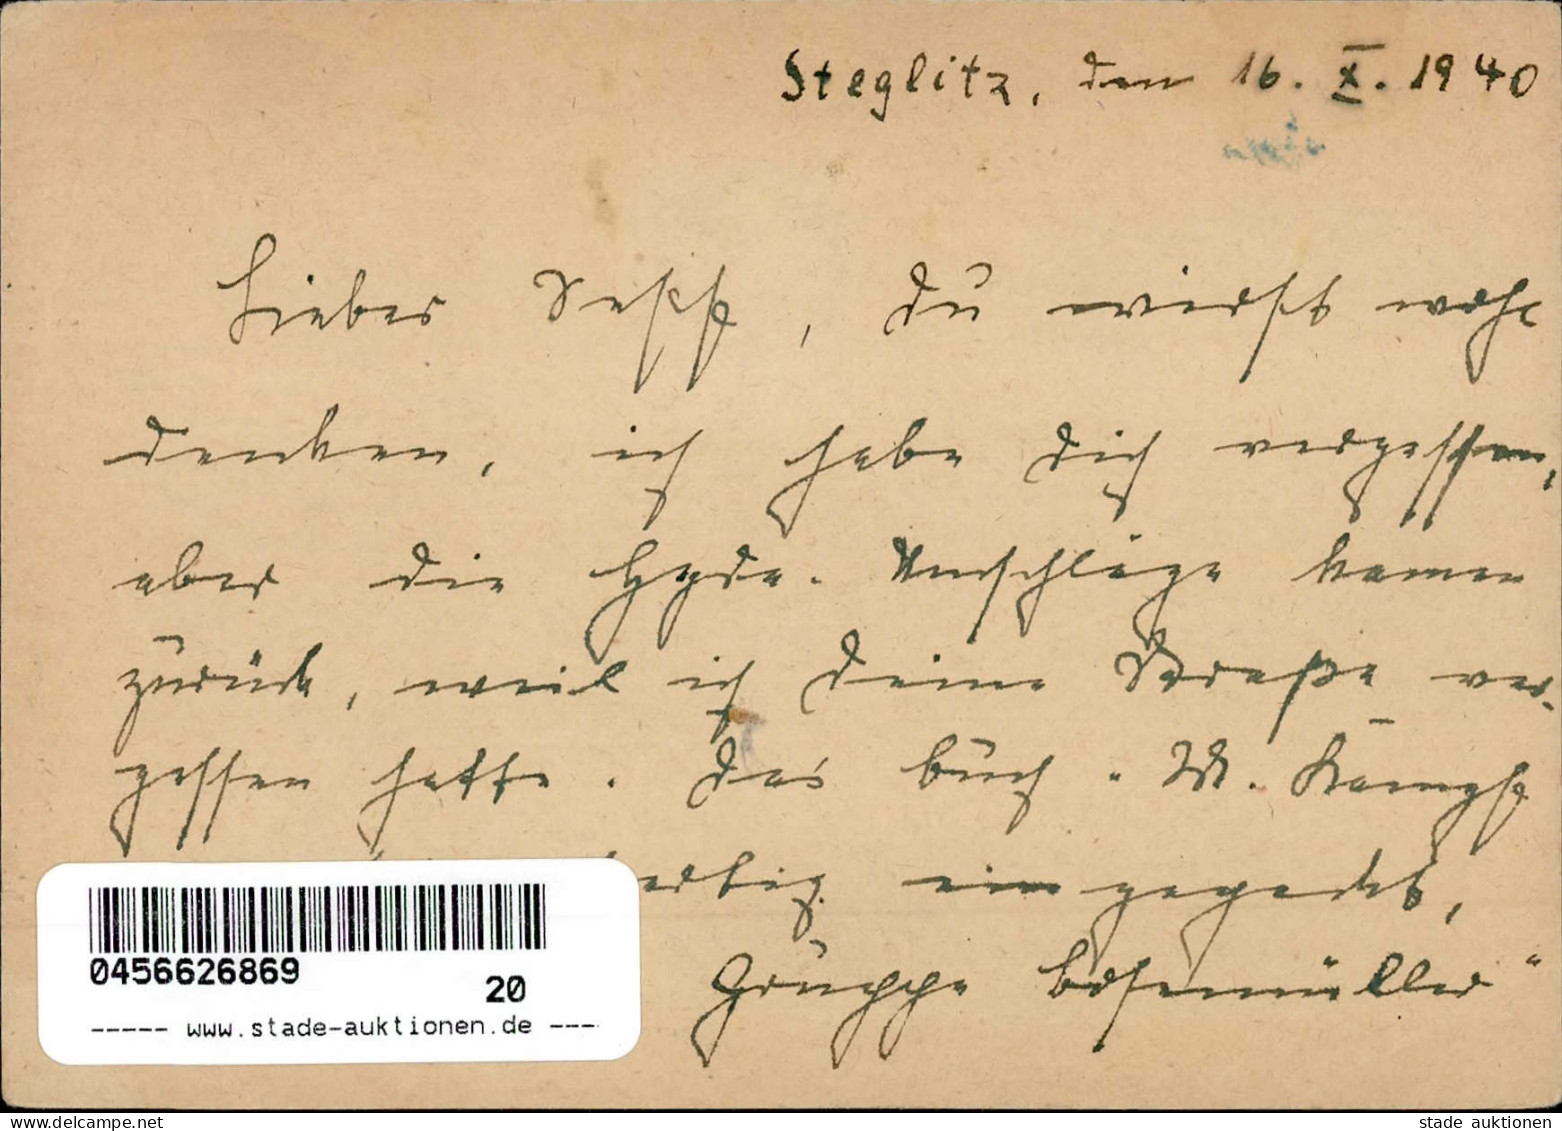 Steglitz, den 16. X. 1940
Lieber Sepp, Du wirst wohl
denken, ich habe Dich vergessen,
aber die Umschläge kamen
zurück, weil ich Deine Straße ver-
gessen hatte. Das Buch „M. Kampf
eingepackt,
Gruppe Bosemüller"
0456626869
20
----- www.stade-auktionen.de ---
stade auktionen